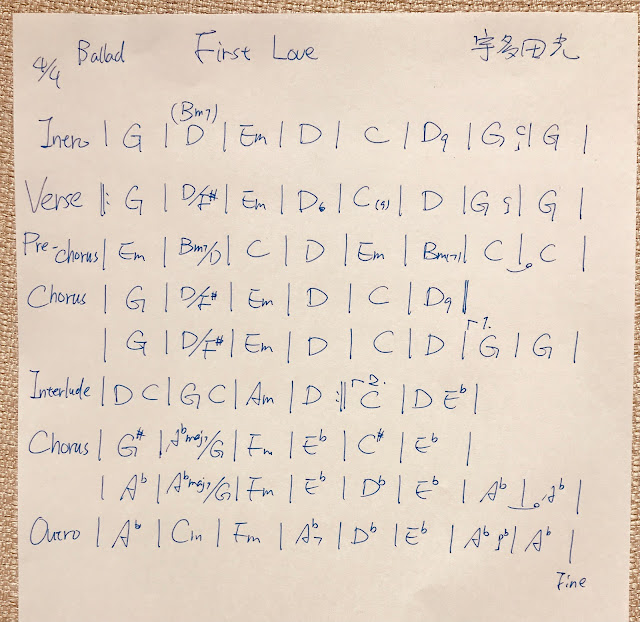 4/4 Ballad First Love 宇多田光
(Bm7)
Intro | G | D | Em | D | C | D9 | G | G |
Verse ‖: G | D/F# | Em | D6 | C(9) | D | G | G |
Pre-chorus | Em | Bm7/D | C | D | Em | Bm(7) | C | C |
Chorus | G | D/F# | Em | D | C | D9 ‖
| G | D/F# | Em | D | C | D |┌1. G | G |
Interlude | D C | G C | Am | D :‖┌2. C | D Eb |
Chorus | G# | Abmaj7/G | Fm | Eb | C# | Eb |
| Ab | Abmaj7/G | Fm | Eb | Db | Eb | Ab | Ab |
Outro | Ab | Cm | Fm | Ab7 | Db | Eb | Ab | Ab |
Fine